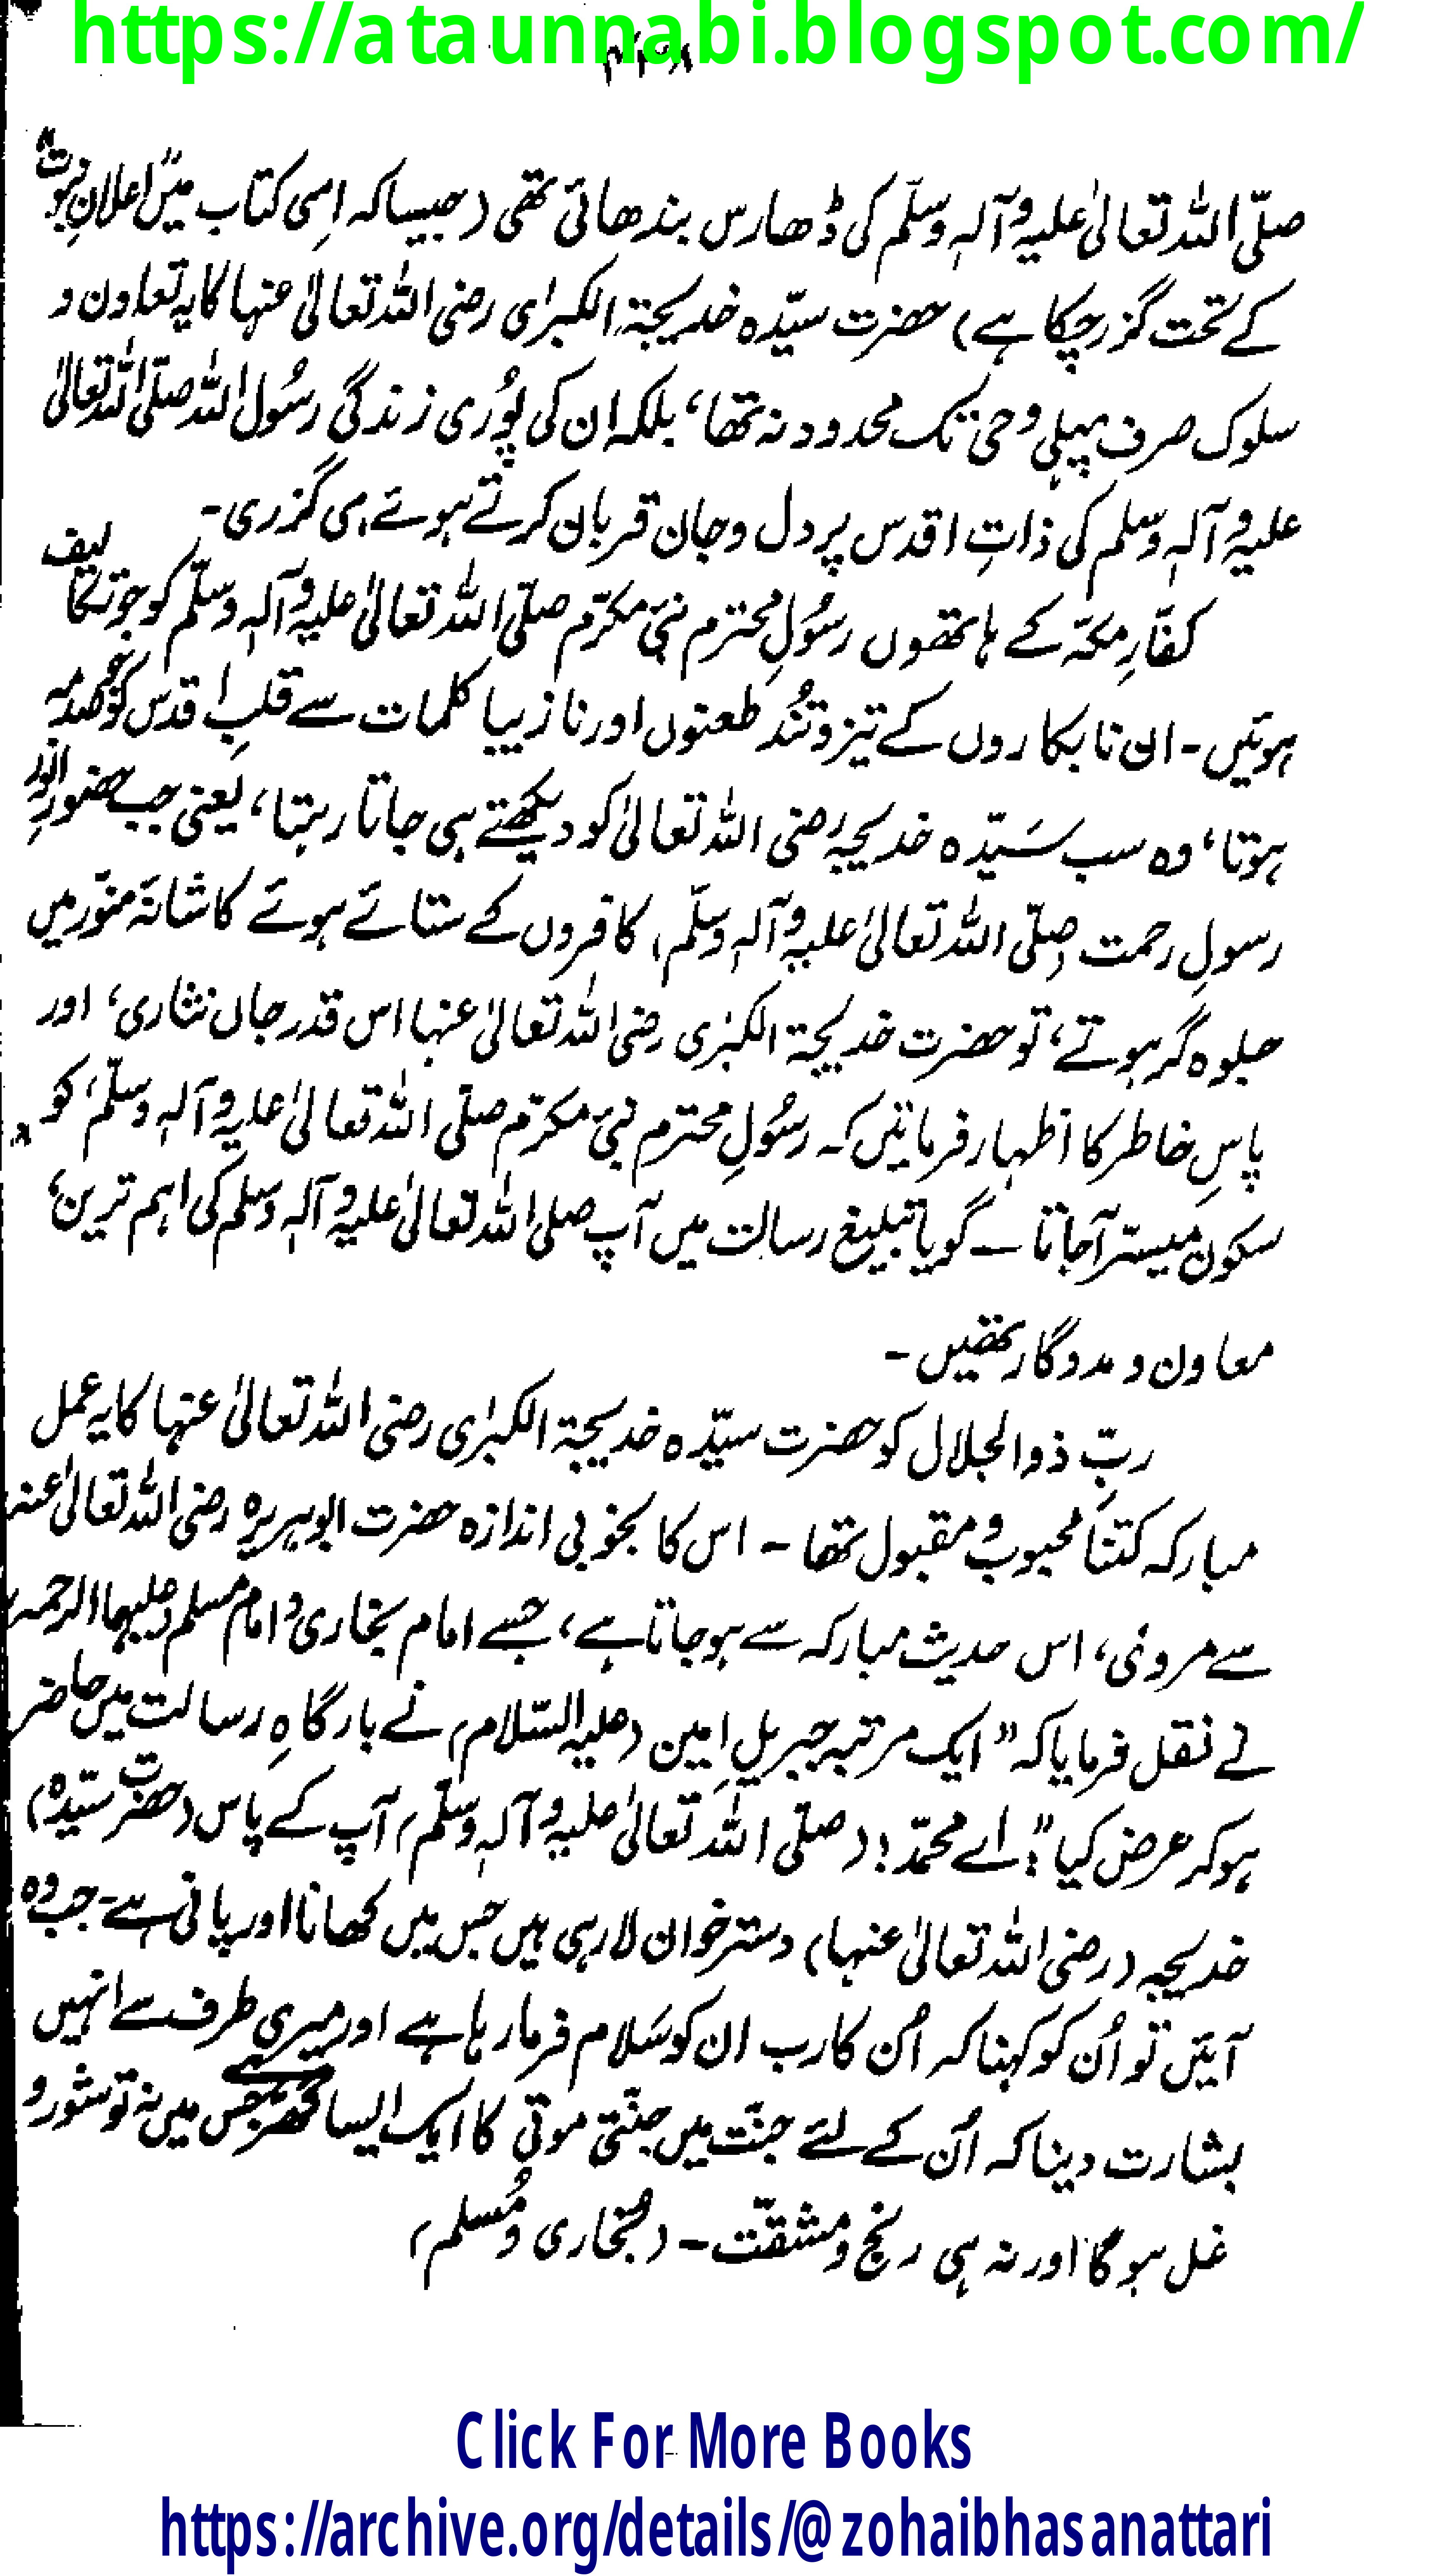 https://ataunnabi.blogspot.com/
صلّی اللہ تعالیٰ علیہ وآلہٖ وسلّم کی ڈھارس بندھائی تھی (جیسا کہ اِسی کتاب میں "اعلانِ نبوت"
کے تحت گزر چکا ہے) حضرت سیّدہ خدیجۃ الکبرٰی رضی اللہ تعالیٰ عنہا کا یہ تعاون و
سلوک صرف پہلی وحی تک محدود نہ تھا، بلکہ ان کی پُوری زندگی رسُول اللہ صلّی اللہ تعالیٰ
علیہ وآلہٖ وسلم کی ذاتِ اقدس پر دل و جان قربان کرتے ہوئے ہی گزری۔
کفّارِ مکہّ کے ہاتھوں رسُولِ محترم نبیِّ مکرّم صلّی اللہ تعالیٰ علیہ وآلہٖ وسلّم کو جو تکالیف
ہوئیں۔ ان نابکاروں کے تیز و تُند طعنوں اور نازیبا کلمات سے قلبِ اقدس کو جو صدمہ
ہوتا، وہ سب سَیّدہ خدیجہ رضی اللہ تعالیٰ کو دیکھتے ہی جاتا رہتا، یعنی جب حضورِ انور
رسولِ رحمت (صلّی اللہ تعالیٰ علیہ وآلہٖ وسلّم) کافروں کے ستائے ہوئے کاشانۂ منوّر میں
جلوہ گر ہوتے، تو حضرت خدیجۃ الکبرٰی رضی اللہ تعالیٰ عنہا اس قدر جاں نثاری، اور
پاسِ خاطر کا اظہار فرمائیں کہ رسُولِ محترم نبیِّ مکرّم صلّی اللہ تعالیٰ علیہ وآلہٖ وسلّم، کو
سکون میسّر آجاتا — گویا تبلیغ رسالت میں آپ صلی اللہ تعالیٰ علیہ وآلہٖ وسلم کی اہم ترین،
معاون و مددگار تھیں۔
ربِّ ذوالجلال کو حضرت سیّدہ خدیجۃ الکبرٰی رضی اللہ تعالیٰ عنہا کا یہ عمل
مبارکہ کتنا محبوب و مقبول تھا۔ اس کا بخوبی اندازہ حضرت ابوہریرہ رضی اللہ تعالیٰ عنہ
سے مروئی، اس حدیث مبارکہ سے ہوجاتا ہے، جسے امام بخاری و امام مسلم (علیہما الرحمہ)
نے نقل فرمایا کہ "ایک مرتبہ جبریلِ امین (علیہ السّلام) نے بارگاہِ رسالت میں حاضر
ہوکر عرض کیا": اے محمّد! (صلّی اللہ تعالیٰ علیہ وآلہٖ وسلّم) آپ کے پاس (حضرت سیّدہ)
خدیجہ (رضی اللہ تعالیٰ عنہا) دسترخوان لارہی ہیں جس میں کھانا اور پانی ہے۔ جب وہ
آئیں تو اُن کو کہنا کہ اُن کا رب ان کو سَلام فرما رہا ہے اور میری طرف سے انہیں
بشارت دینا کہ اُن کے لئے جنّت میں جنّتی موتی کا ایک ایسا گھر ہے جس میں نہ تو شور و
غل ہوگا اور نہ ہی رنج و مشقّت۔ (بُخاری و مُسلم)
Click For More Books
https://archive.org/details/@zohaibhasanattari